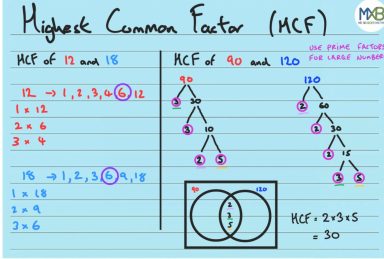 Highest Common Factor (HCF)
MxB
HCF of 12 and 18
12 → 1, 2, 3, 4, 6, 12
1 x 12
2 x 6
3 x 4
18 → 1, 2, 3, 6, 9, 18
1 x 18
2 x 9
3 x 6
HCF of 90 and 120
USE PRIME FACTORS
FOR LARGE NUMBER
90
3 30
3 10
2 5
120
2 60
2 30
2 15
3 5
90 120
2
3
5
HCF = 2x3x5
= 30